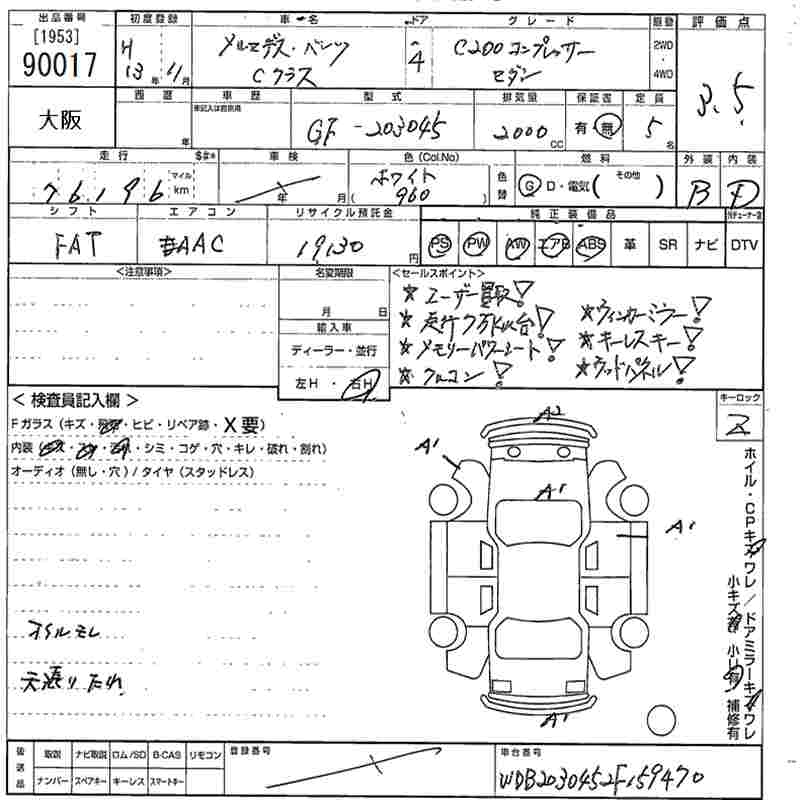 出品番号 初度登録 車・名 ドア グレード 駆動 評価点
[1953]
90017
H 13年 11月
メルセデス・ベンツ
Cクラス
4
C200コンプレッサー
セダン
2WD
・
4WD
3.5
大阪
西暦 車歴 型式 排気量 保証書 定員
年
未記入は自家用
GF-203045
2000 CC
有・無
5名
走行 $#* 車検 色(Col.No) 燃料 外装 内装
76,196 マイル km
年 月
ホワイト
960
色替
G D・電気( その他 )
B D
シフト エアコン リサイクル預託金 純正装備品
FAT AAC 19,130円
PS PW AW エアB ABS 革 SR ナビ DTV
<注意事項> 名変期限 <セールスポイント>
月 日
輸入車
ディーラー・並行
左H・右H
☆ユーザー買取!
☆走行7万km台!
☆メモリーパワーシート!
☆ウィンカーミラー!
☆キーレスキー!
☆ウッドパネル!
<検査員記入欄>
Fガラス(キズ・・ヒビ・リペア跡・X要)
内装(・シミ・コゲ・穴・キレ・破れ・割れ)
オーディオ(無し・穴)/タイヤ(スタッドレス)
オイルモレ
天張りたれ
A2
A1
A1
A1
A1
キーロック
ホイル・CPキズワレ/ドアミラーキズワレ
小キズ 小凹有 補修有
後送品
取説 ナビ取説 ロム/SD B-CAS リモコン
ナンバー スペアキー キーレス スマートキー
登録番号
車台番号
WDB2030452F159470